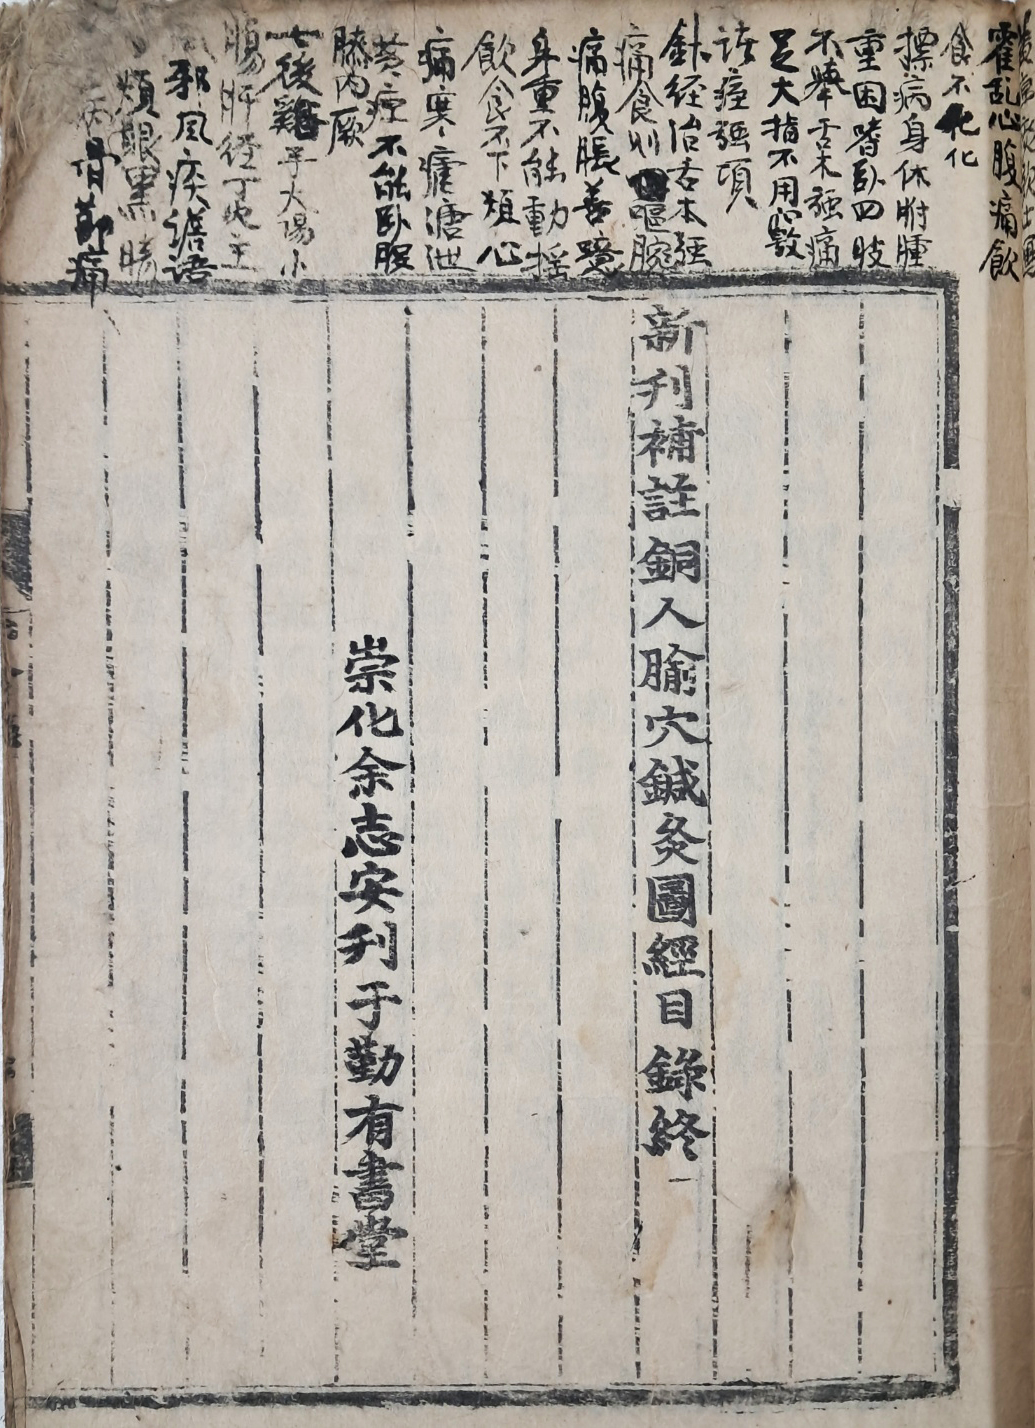 霍乱心腹痛飲
食不化
摽病身体胕腫
重困嗜卧四肢
不擧舌本強痛
足大指不用
痓強項
針経治舌本強
痛食則嘔腕
痛腹脹善噫
身重不能動揺
飲食不下煩心
痛寒瘧溏泄
黄疸不能卧股
膝内厥
後雞子大陽小
腸肝径丁吃主
邪風疾譫语
煩眼黒
病骨節痛
新刊補註銅人腧穴鍼灸圖經目錄終
崇化余志安刊于勤有書堂